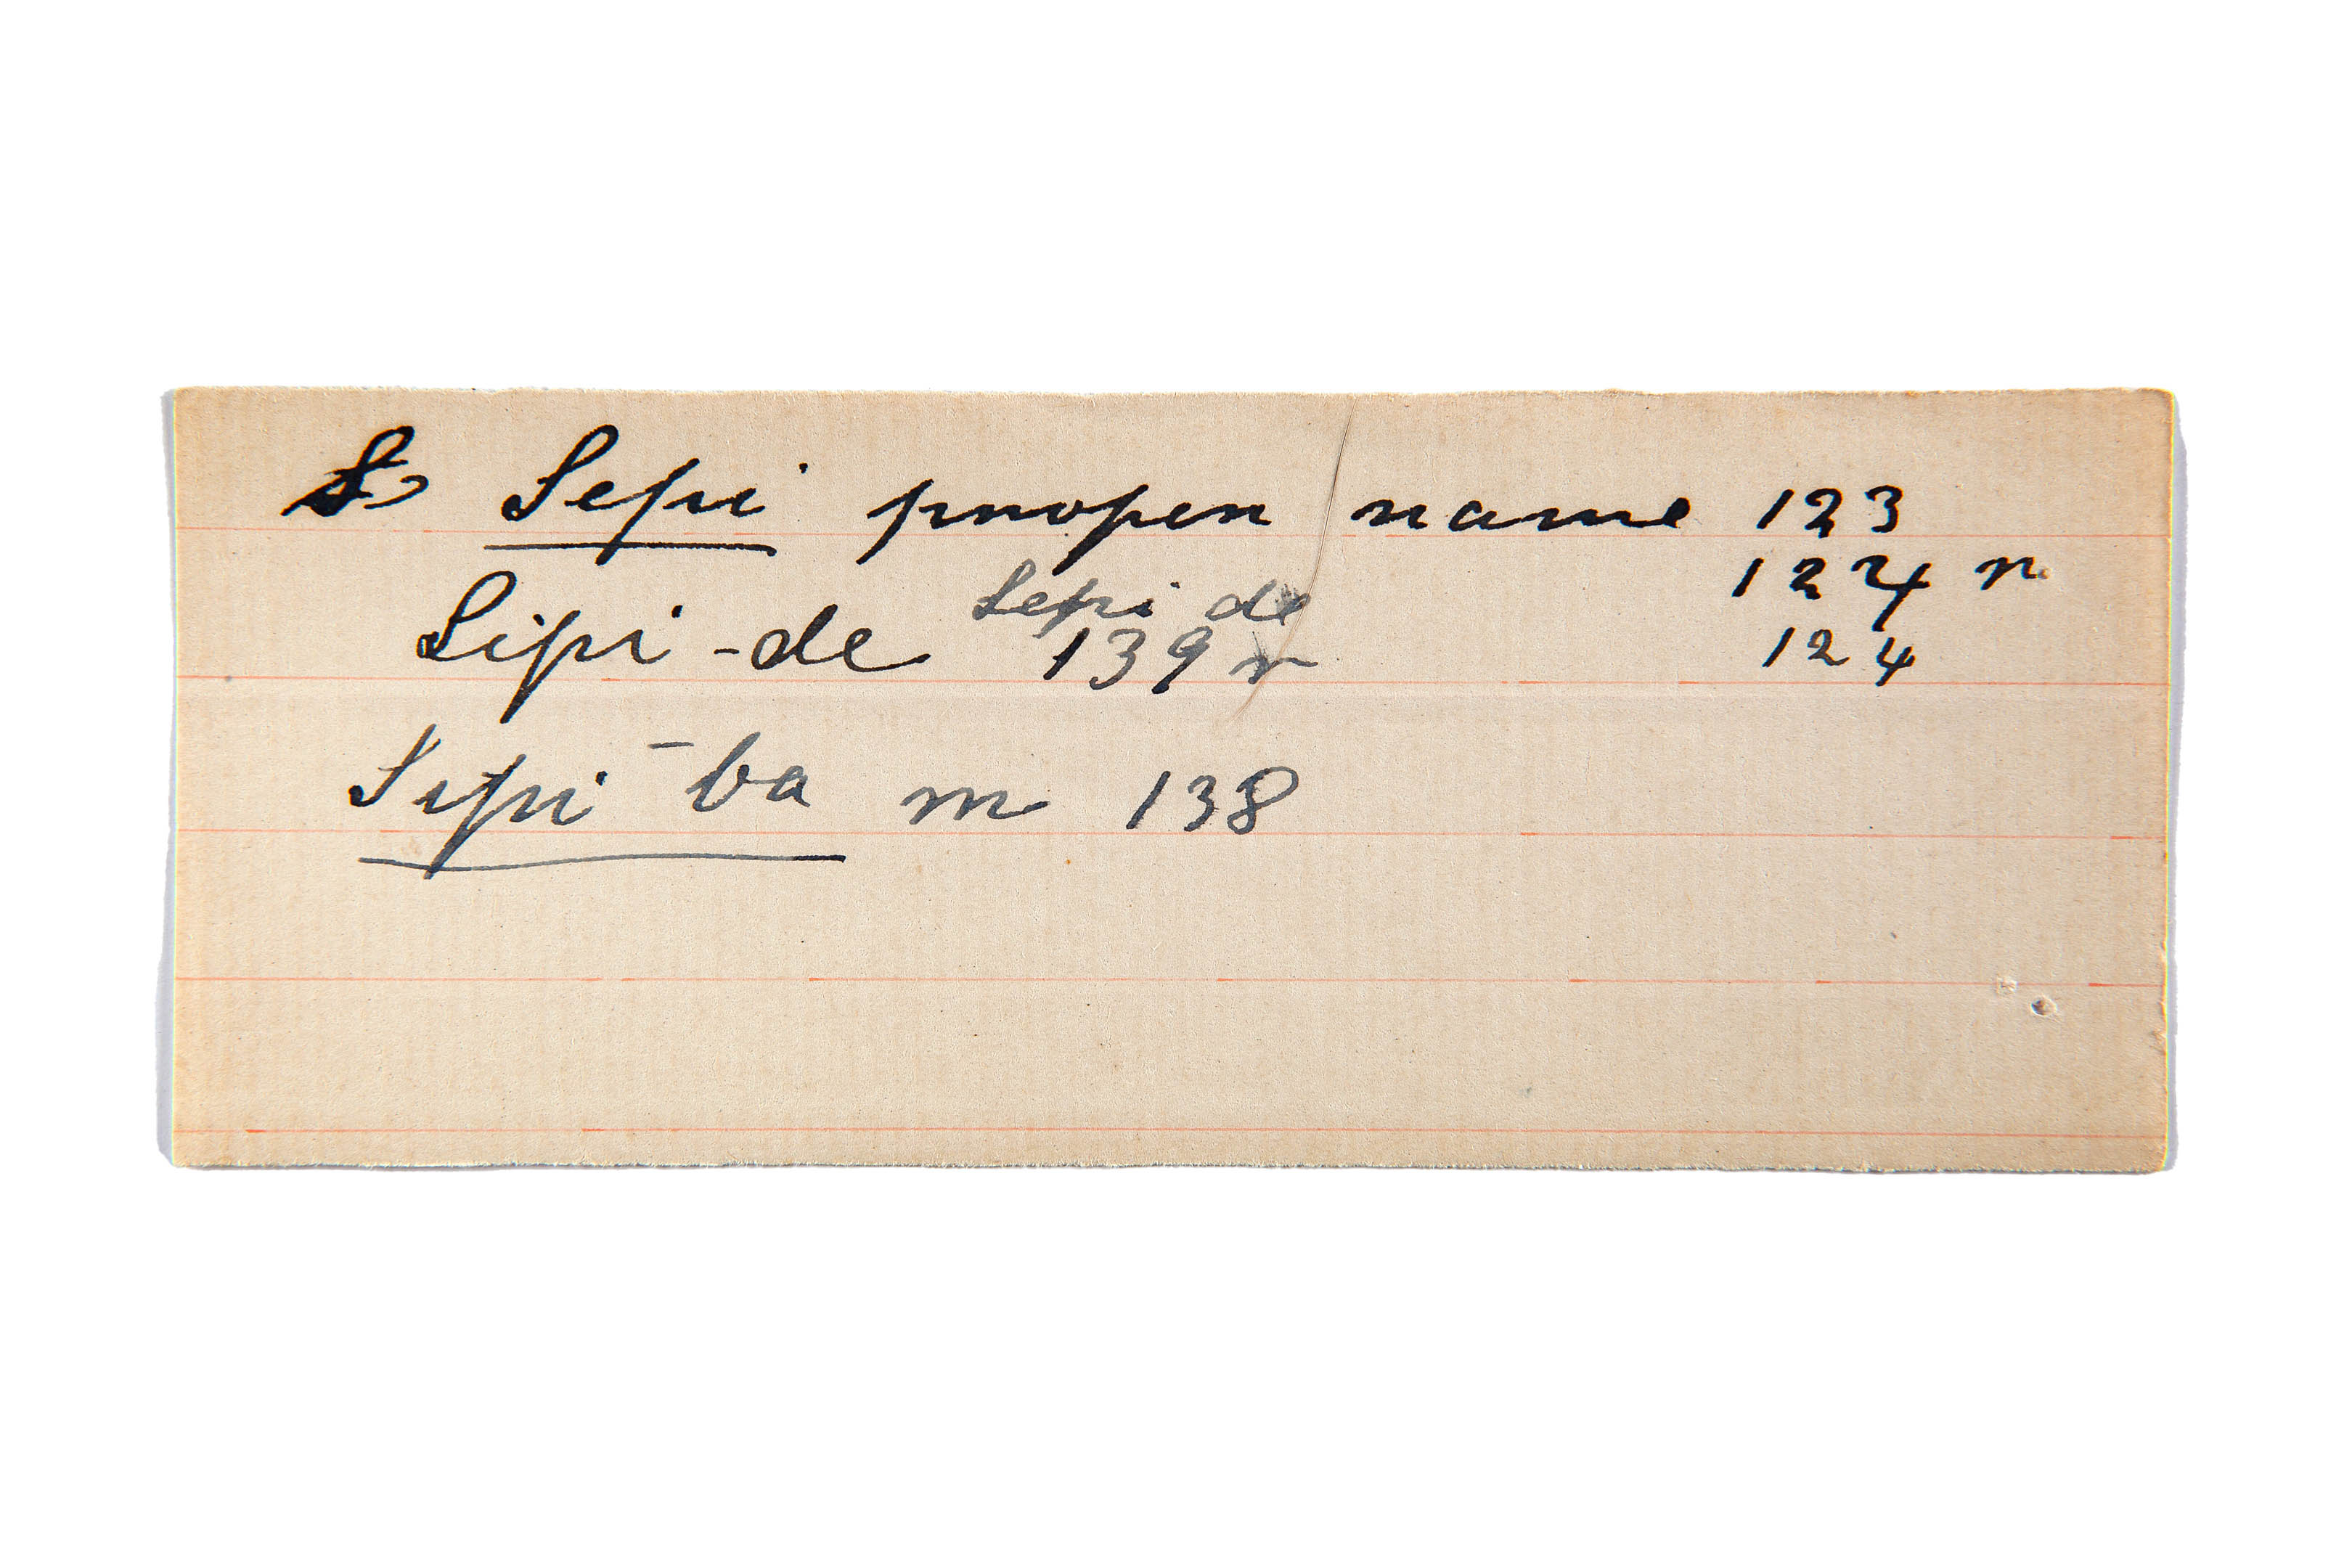 S Sepi proper name 123
124 n
Sepi de
Sipi-de 139 r
124
Sepi-ba m 138